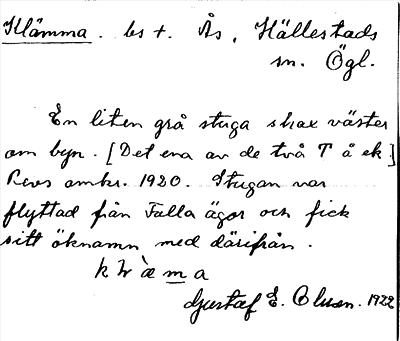 Klämma. bs t. Ås, Hällestads
sn. Ögl.
En liten grå stuga strax väster
om byn. [Det ena av de två T å ek.]
Revs omkr. 1920. Stugan var
flyttad från Falla ägor och fick
sitt öknamn med därifrån.
Gustaf E. Olson. 1922